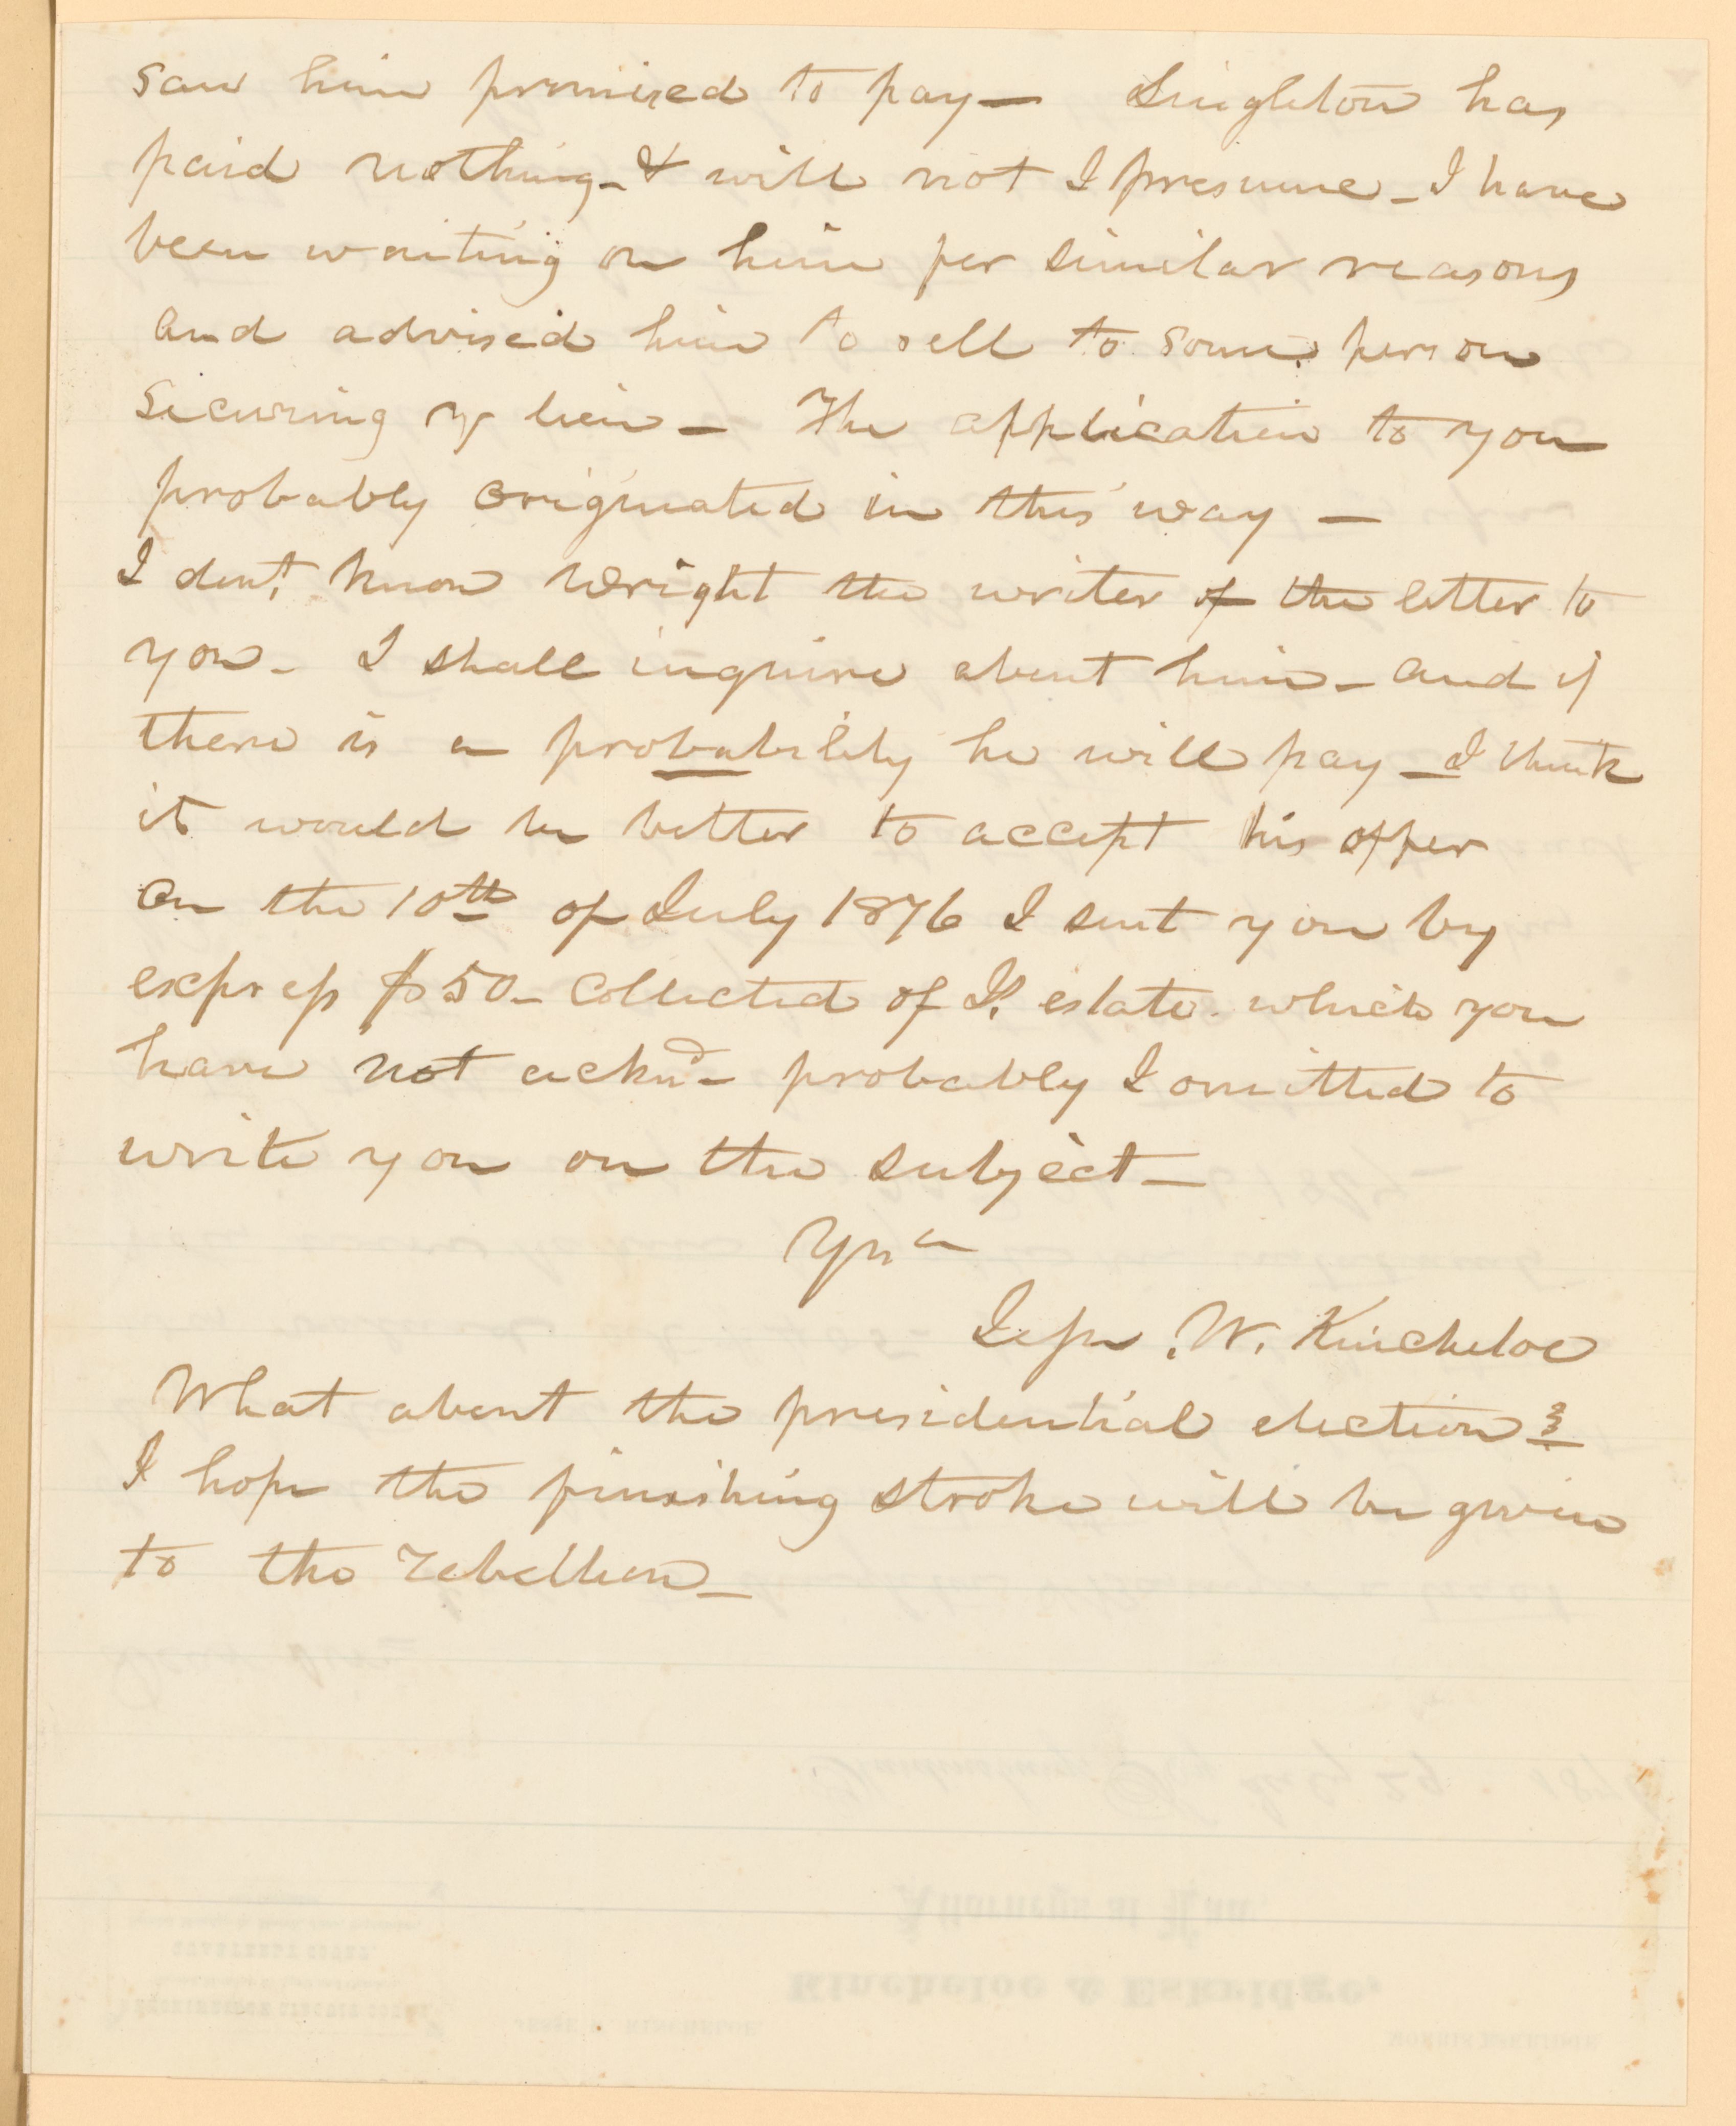 saw him promised to pay— Singleton has
paid nothing- & will not I presume- I have
been waiting on him for similar reasons
and advised him to sell to some person
securing my lien— The application to you
probably originated in this way —
I dont, know Wright the writer of the letter to
you- I shall inquire about him- and if
there is a probability he will pay— I think
it would be better to accept his offer
On the 10th of July 1876 I sent you by
express $50- collected of estate. which you
have not acknd- probably I omitted to
write you on the subject—
Yrs
Jesse W. Kincheloe
What about the presidential election?
I hope the finishing stroke will be given
to the rebellion—
Dear Sir
Ky July 29 187
Attorneys at Law
Kincheloe & Eskridge,
KINCHELOE
MORRIS ESKRIDGE